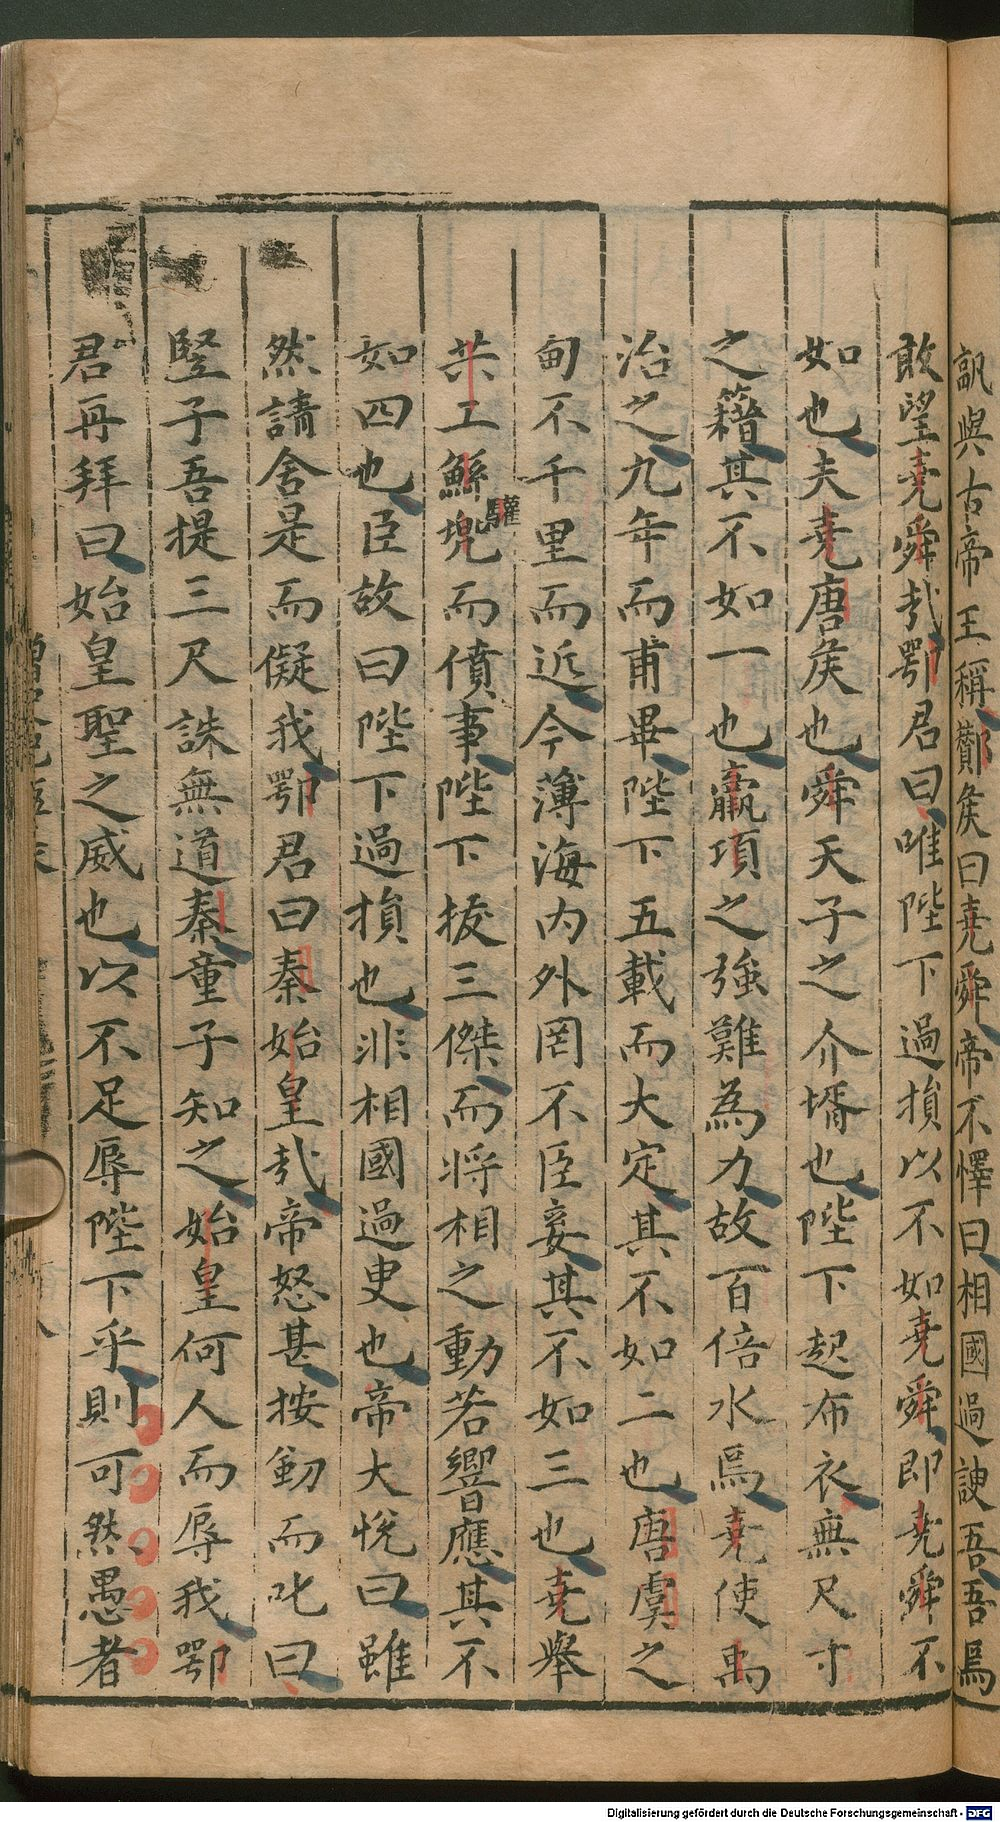 訊與古帝王稱酇矦曰堯舜帝不懌曰相國過諛吾吾焉
敢望堯舜㢤鄂君曰唯陛下過損以不如堯舜即堯舜不
如也夫堯唐矦也舜天子之介壻也陛下起布衣無尺寸
之籍其不如一也嬴項之強難為力故百倍水焉堯使禹
治之九年而甫畢陛下五載而大定其不如二也唐虞之
甸不千里而近今薄海內外罔不臣妾其不如三也堯舉
共工鯀驩兜而僨事陛下拔三傑而將相之動若響應其不
如四也臣故曰陛下過損也非相國過叟也帝大悅曰雖
然請舍是而儗我鄂君曰秦始皇㢤帝怒甚按劒而叱曰
豎子吾提三尺誅無道秦童子知之始皇何人而辱我鄂
君再拜曰始皇聖之威也以不足辱陛下乎則可然愚者
Digitalisierung gefördert durch die Deutsche Forschungsgemeinschaft - DFG